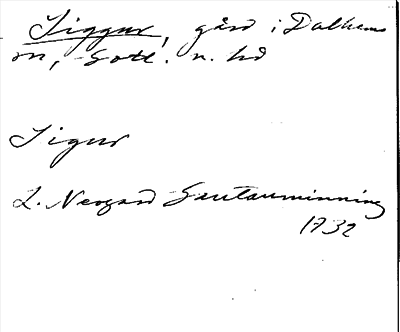 Siggur, gård i Dalhems
sn, Gotl. n. hd
Sigur
L. Neogard Gautauminning
1732